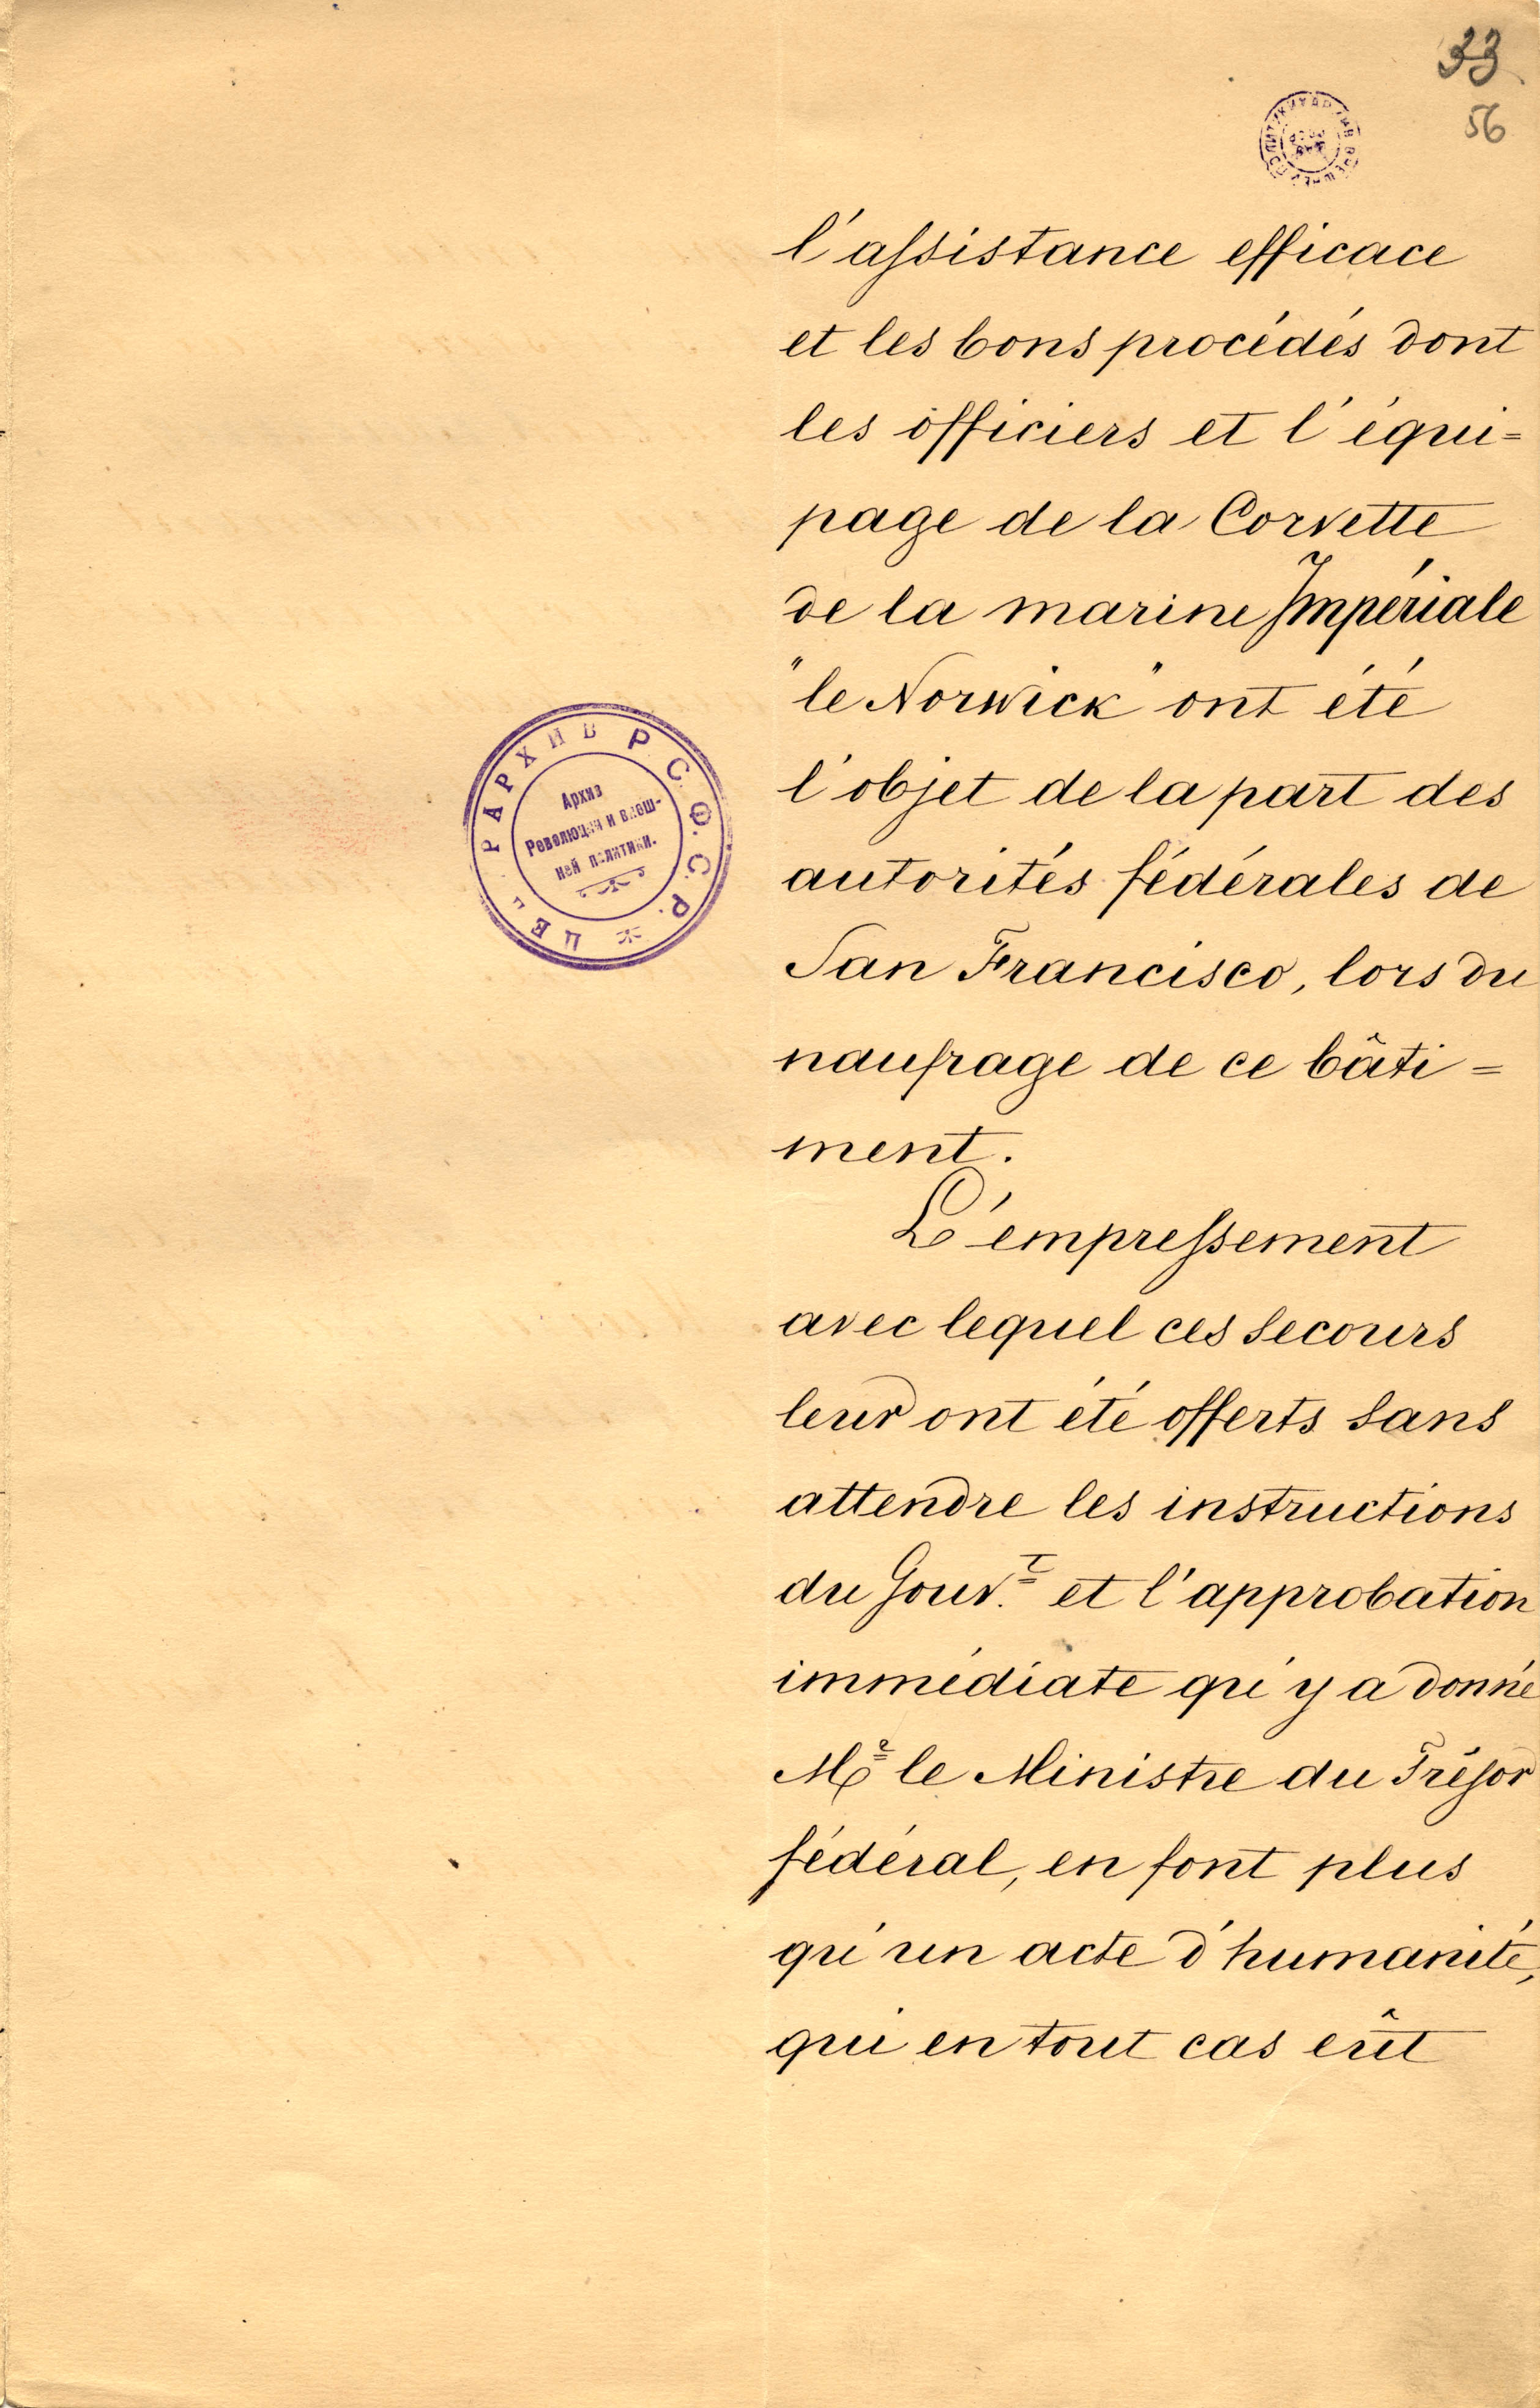 33
56
l'assistance efficace
et les bons procédés dont
les officiers et l'équi=
page de la Corvette
de la marine Impériale
"le Norwick" ont été
l'objet de la part des
autorités fédérales de
San Francisco, lors du
naufrage de ce bâti=
ment.
L'empressement
avec lequel ces secours
leur ont été offerts sans
attendre les instructions
du Gouv.t et l'approbation
immédiate qu'y a donné
Mr le Ministre du Trésor
fédéral, en font plus
qu'un acte d'humanité,
qui en tout cas eût
АРХИВ Р.С.Ф.С.Р. *
Архив
Революции и внеш-
ней политики.